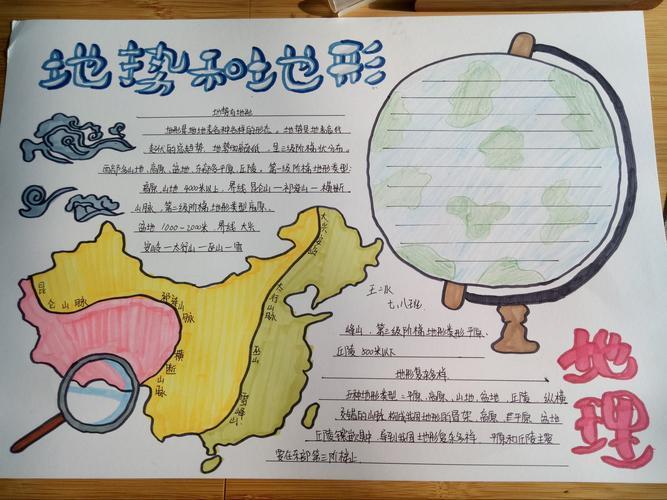 地势和地形
地势与地形
地形是地表各种各样的形态。地势是地表高低
起伏的总趋势，地势西高东低，呈三级阶梯状分布。
西部多山地、高原、盆地，东部多平原、丘陵。第一级阶梯地形类型：
高原、山地 4000米以上，界线 昆仑山一祁连山一横断
山脉，第二级阶梯地形类型高原、
盆地 1000－2000米 界线 大兴
安岭一太行山一巫山一雪
峰山，第三级阶梯地形类形平原、
丘陵 500米以下
地形复杂多样
五种地形类型：平原、高原、山地、盆地、丘陵 纵横
交错的山脉，构成我国地形的骨架，高原、平原、盆地
丘陵镶嵌其中，导致我国地形复杂多样，平原和丘陵主要
要在东部第三阶梯上
昆仑山脉
祁连山脉
横断山脉
大兴安岭
太行山脉
巫山
雪峰山
七、八班
地理